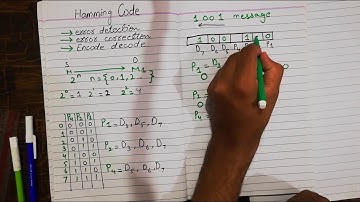 Hamming Code
→ error detection
→ error correction
Encode decode
S
D
M
M₁
2ⁿ n = {0,1,2
2⁰=1 2¹=2 2²=4
P₄ P₂ P₁
0 0 0 0
1 0 0 1
P₁ = D₃, D₅, D₇
P₂ = D₃, D₆, D₇
P₄ = D₅, D₆, D₇
7 1 1 1
1001 message
1 0 0 1 0
D₇ D₆ D₅ P₄ P₁
P₁ = D₃
0
P₂
0
P₄